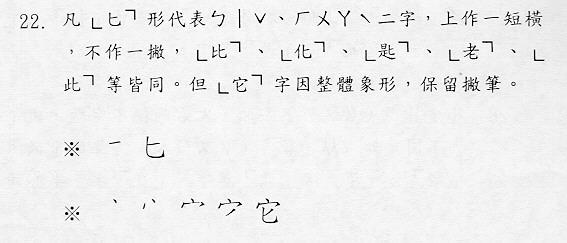 22. 凡「匕」形代表ㄅㄧˇ、ㄏㄨㄚˋ二字，上作一短橫
，不作一撇，「比」、「化」、「匙」、「老」、「
此」等皆同。但「它」字因整體象形，保留撇筆。
※ ㇐ 匕
※ 丶 ⺀ 宀 宀 它